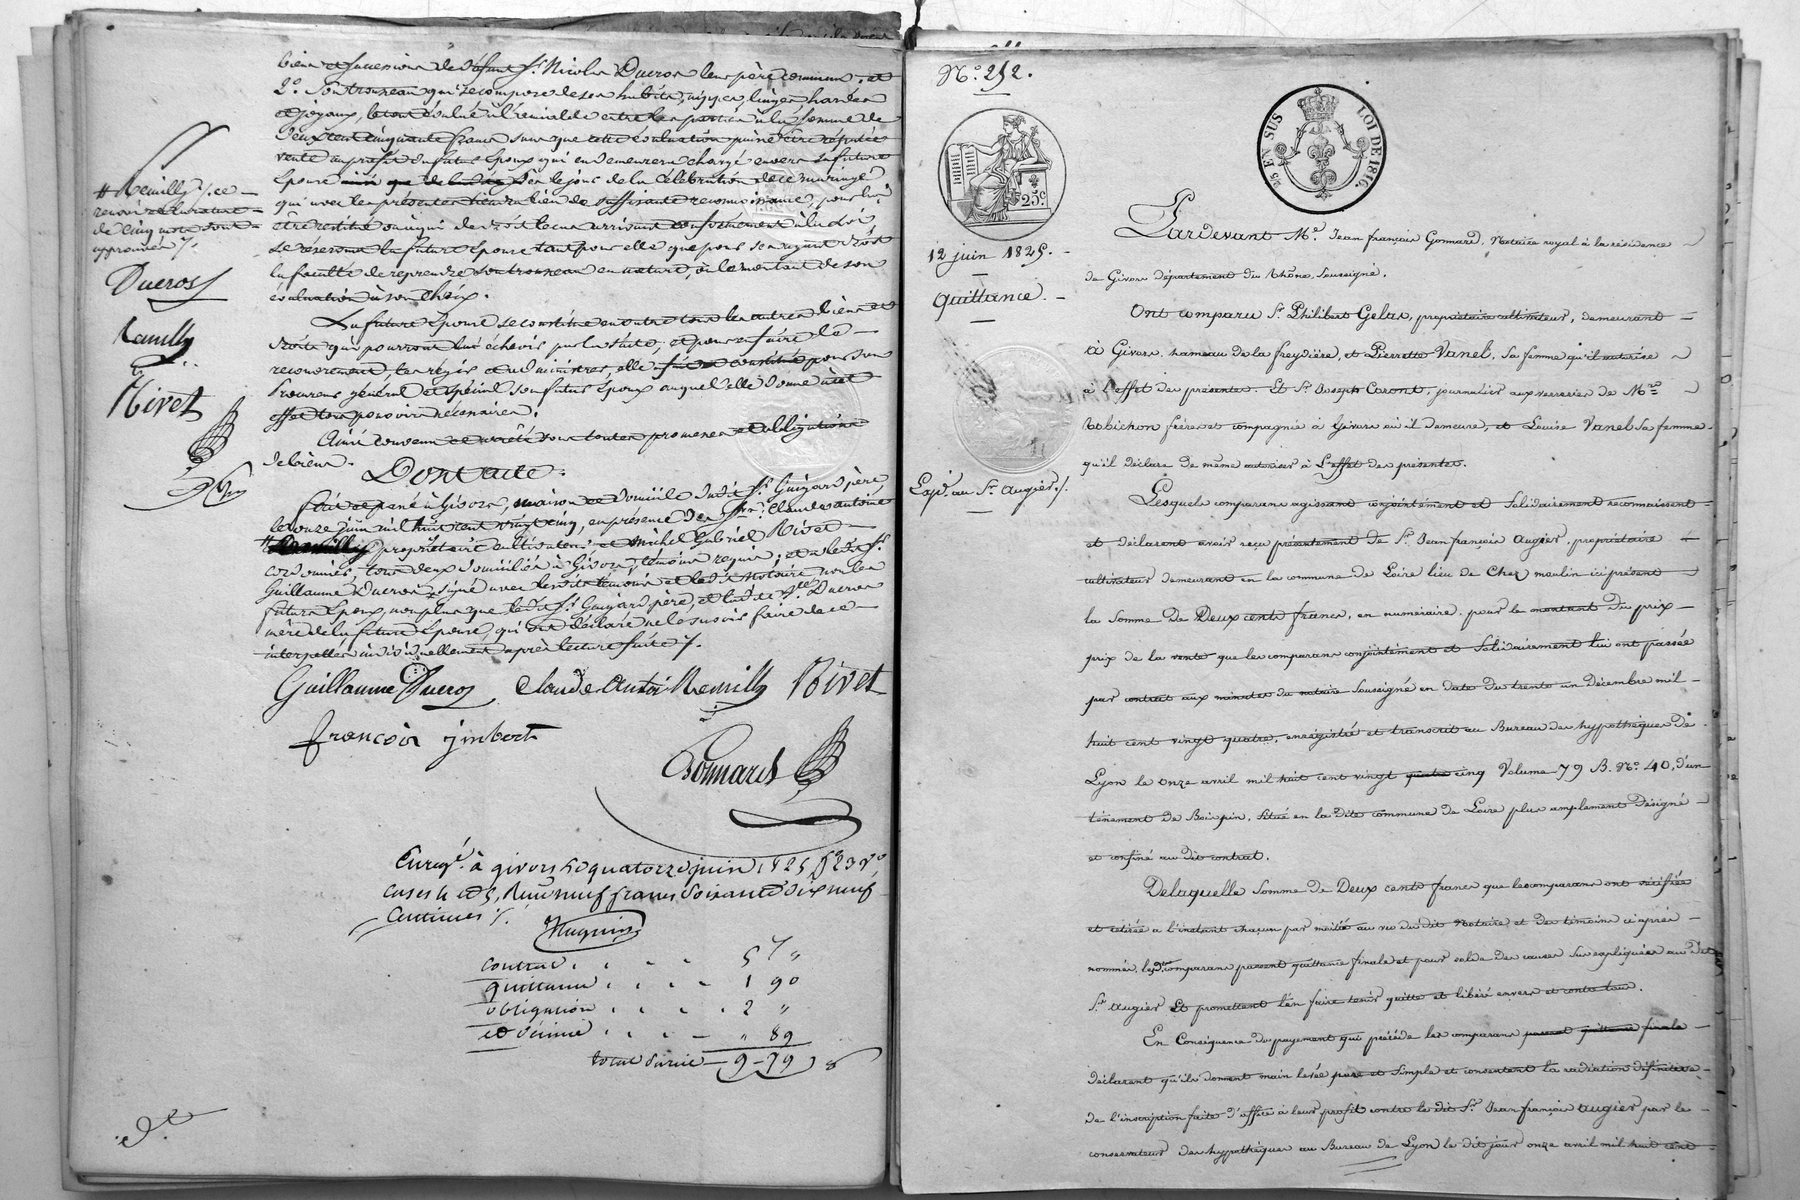 biens et successions de défunt Sr. Nicolas Ducros leur père commun. et
2o. Son trousseau qui se compose de ses habits, nippes, linges, hardes
et joyaux, le tout évalué à l'amiable entre les parties à la somme de
Deux cent cinquante francs sans que cette évaluation puisse être réputée
vente au profit du futur Epoux qui en demeurera chargé envers la future
Epouse dès le jour de la Célébration de ce mariage
qui avec les présentes tiendra lieu de suffisante reconnaissance, pour lui
être restitué ou à qui de droit le cas arrivant conformément à la loi,
se réservant la future Epouse tant pour elle que pour ses ayant droit
la faculté de reprendre son trousseau en nature, ou le montant de son
évaluation à son choix.
La future Epouse se constitue en outre tous les autres biens et
droits qui pourront lui échoir par la suite, et pour en faire le
recouvrement, les régir et administrer, elle constitue pour son
Procureur général et spécial son futur Epoux auquel elle donne à cet
effet tous pouvoirs nécessaires.
Ainsi convenu et arrêté sous toutes promesses et obligations
de biens.
Dont acte.
Fait et passé à Givors, maison et domicile dudit Sr. Guigard père,
le onze juin mil huit cent vingt cinq, en présence des Srs. Claude antoine
# propriétaire cultivateur et Michel Gabriel Rivet
cordonnier, tous deux domiciliés à Givors, témoins requis; et ledit Sr.
Guillaume Ducros a signé avec lesdits témoins et ledit Notaire, non les
futurs Epoux, non plus que ledit Sr. Guigard père, et ladite Ducros
mère de la future Epouse, qui ont déclaré ne le savoir faire de ce
interpellés individuellement après lecture faite ./.
# Remilly ./. ce
renvoi et la rature
de cinq mots sont
approuvés ./.
Ducros
Remilly
Rivet
Guillaume Ducros Claude Antoi Remilly Rivet
françois jmbert
Gonnard
Enregé. à givors le quatorze juin 1825 fo 23 Vo.
cases 4 et 5, Reçu neuf francs soixante dix neuf
Centimes ./.
contrat 5 "
quittance 1 90
obligation 2 "
et décime " 89
total 9 - 79
No. 252.
25 EN SUS LOI DE 1816.
25c
12 juin 1825.
Quittance.
Expé. au Sr. Augier ./.
Pardevant Me. Jean françois Gonnard, Notaire royal à la résidence
de Givors département du Rhône, soussigné.
Ont comparu Sr. Philibert Gelas, propriétaire cultivateur, demeurant
à Givors, hameau de la freydière, et Pierrette Vanel, sa femme qu'il autorise
à l'effet des présentes. Et Sr. Joseph Coront, journalier aux verreries de Mrs.
Robichon frères et compagnie à Givors où il demeure, et Louise Vanel sa femme
qu'il déclare de même autoriser à L'effet des présentes.
Lesquels comparans agissant conjointement et Solidairement reconnaissent
et déclarent avoir reçu présentement de Sr. Jean françois Augier, propriétaire
cultivateur demeurant en la commune de Loire lieu de Chez moulin ici présent
la Somme de Deux cents francs, en numéraire, pour le montant du prix
prix de la vente que les comparans conjointement et Solidairement lui ont passée
par contrat aux minutes du notaire Soussigné en date du trente un Décembre mil
huit cent vingt quatre, enregistré et transcrit au Bureau des hypothèques de
Lyon le onze avril mil huit cent vingt quatre cinq Volume 79 B. No. 40, d'un
ténement de Bois pin, situé en la dite commune de Loire plus amplement désigné
et confiné au dit contrat.
De laquelle Somme de Deux cents francs que les comparans ont vérifiée
et retirée à l'instant chacun par moitié au vu du dit Notaire et des témoins ci après
nommés, lesd. comparans passent quittance finale et pour solde des causes sus expliquées au dit
Sr. Augier Et promettent l'en faire tenir quitte et libéré envers et contre tous.
En Conséquence du payement qui précède les comparans passent quittance finale
déclarant qu'ils donnent main levée pure et simple et consentent la radiation définitive
de l'inscription faite d'office à leur profit contre le dit Sr. Jean françois Augier par le
conservateur des hypothèques au Bureau de Lyon le dit jour onze avril mil huit cent